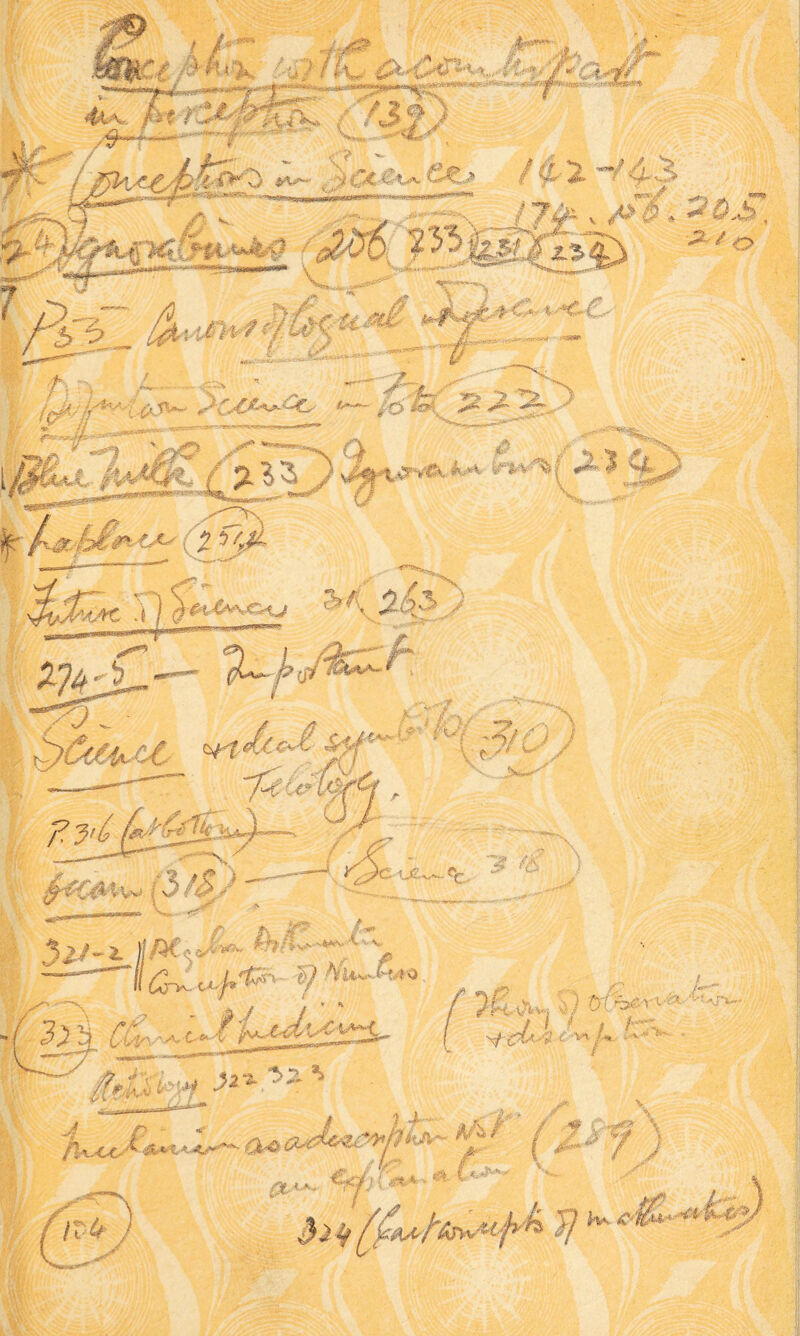 Conception with a counterpart
in perception (139)
* Conceptions in Science 142-143
174. 156. 205.
210
24 Ignorabimus 206 233 231 234
7
P35 Canons of logical inference
Definition Science in toto 222
Blue Milk (233) Ignoramibus (234)
* Laplace (251,2
Future of Science 31, 263
274-5 — Important.
Science & ideal symbols (310)
Telology.
P. 316 (at bottom)
Occam (318) — (Science 318)
321-2 || Algebra Arithmetic
Conception of Numbers.
(323 Clinical Medicine
(Theory of Observation
& description.
Aetiology 322, 323
Mechanism as a description Not (289)
an explanation
(104)
324 (Exact concepts of mathematics)